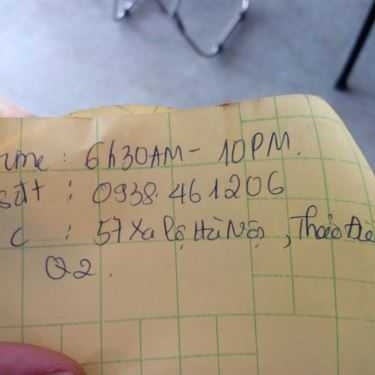 ime : 6h30AM - 10PM.
sđt : 0938.461206
c : 57 Xa lộ Hà Nội, Thảo Điề
Q2.